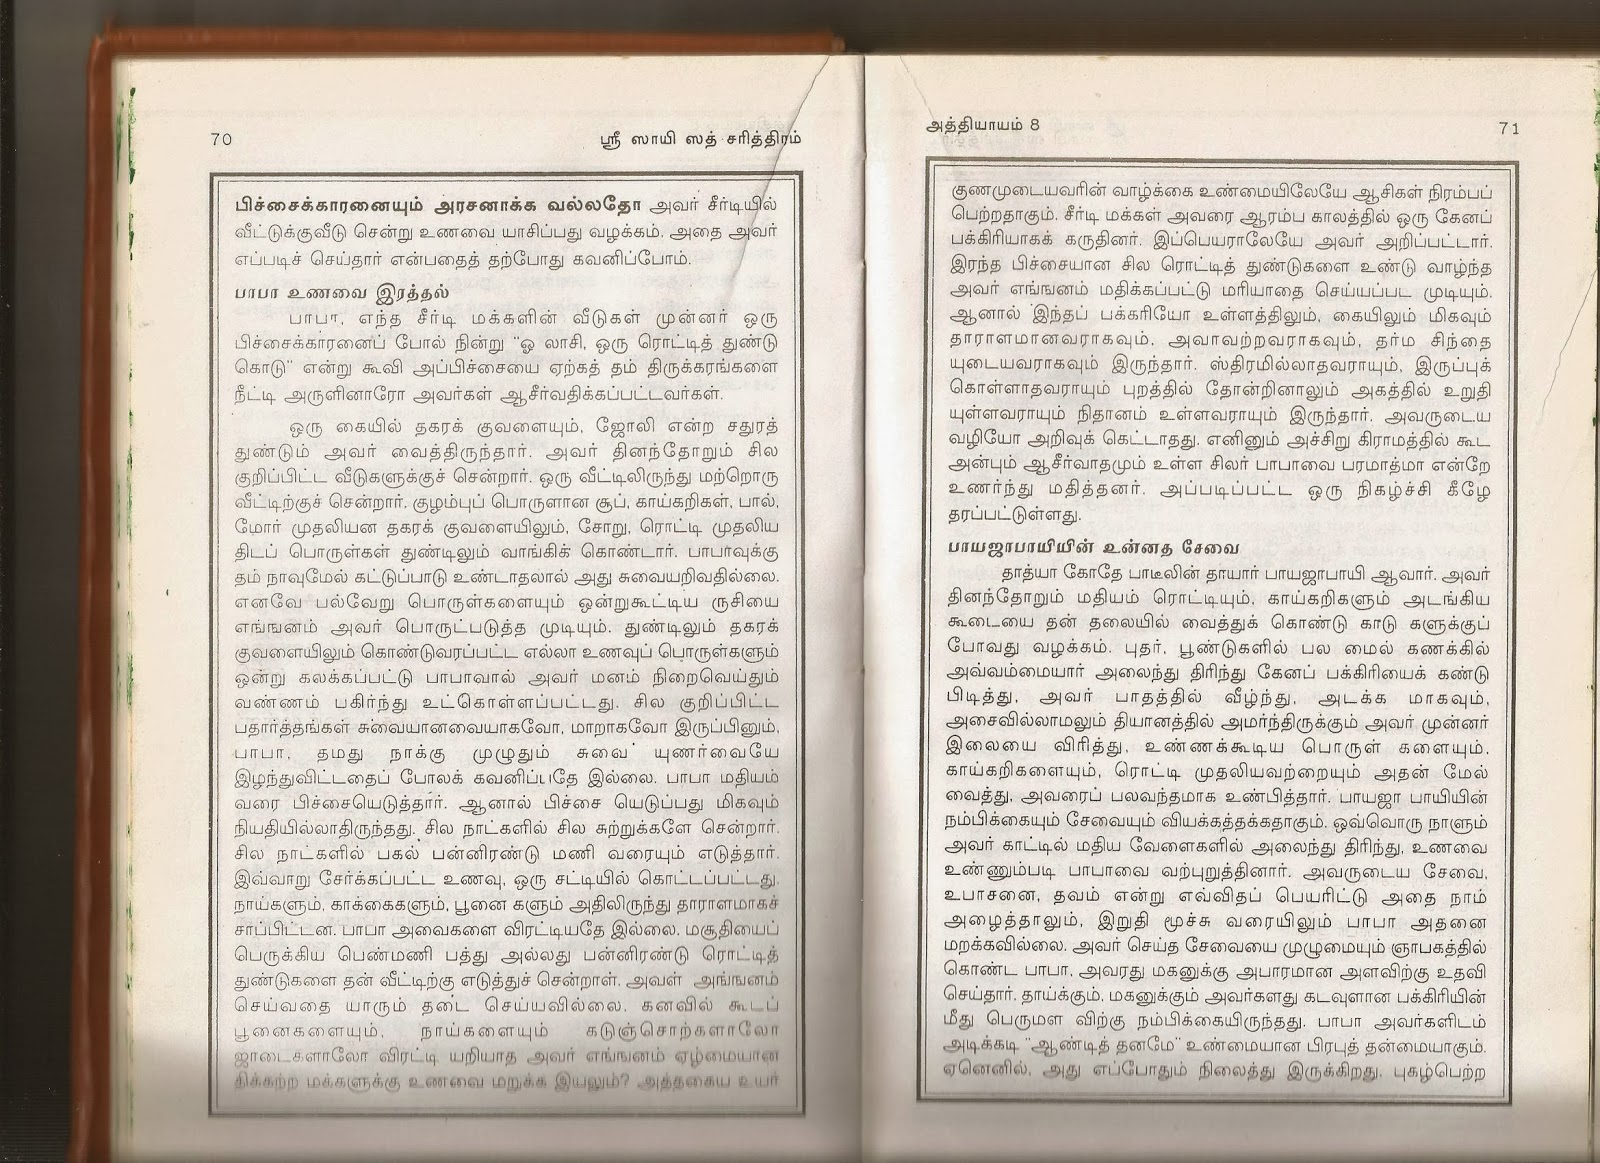 70
ஸ்ரீ ஸாயி ஸத் சரித்திரம்
பிச்சைக்காரனையும் அரசனாக்க வல்லதோ அவர் சீர்டியில்
வீட்டுக்குவீடு சென்று உணவை யாசிப்பது வழக்கம். அதை அவர்
எப்படிச் செய்தார் என்பதைத் தற்போது கவனிப்போம்.
பாபா உணவை இரத்தல்
பாபா, எந்த சீர்டி மக்களின் வீடுகள் முன்னர் ஒரு
பிச்சைக்காரனைப் போல் நின்று "ஓ லாசி, ஒரு ரொட்டித் துண்டு
கொடு" என்று கூவி அப்பிச்சையை ஏற்கத் தம் திருக்கரங்களை
நீட்டி அருளினாரோ அவர்கள் ஆசீர்வதிக்கப்பட்டவர்கள்.
ஒரு கையில் தகரக் குவளையும், ஜோலி என்ற சதுரத்
துண்டும் அவர் வைத்திருந்தார். அவர் தினந்தோறும் சில
குறிப்பிட்ட வீடுகளுக்குச் சென்றார். ஒரு வீட்டிலிருந்து மற்றொரு
வீட்டிற்குச் சென்றார். குழம்புப் பொருளான சூப், காய்கறிகள், பால்,
மோர் முதலியன தகரக் குவளையிலும், சோறு, ரொட்டி முதலிய
திடப் பொருள்கள் துண்டிலும் வாங்கிக் கொண்டார். பாபாவுக்கு
தம் நாவுமேல் கட்டுப்பாடு உண்டாதலால் அது சுவையறிவதில்லை.
எனவே பல்வேறு பொருள்களையும் ஒன்றுகூட்டிய ருசியை
எங்ஙனம் அவர் பொருட்படுத்த முடியும். துண்டிலும் தகரக்
குவளையிலும் கொண்டுவரப்பட்ட எல்லா உணவுப் பொருள்களும்
ஒன்று கலக்கப்பட்டு பாபாவால் அவர் மனம் நிறைவெய்தும்
வண்ணம் பகிர்ந்து உட்கொள்ளப்பட்டது. சில குறிப்பிட்ட
பதார்த்தங்கள் சுவையானவையாகவோ, மாறாகவோ இருப்பினும்,
பாபா, தமது நாக்கு முழுதும் சுவை யுணர்வையே
இழந்துவிட்டதைப் போலக் கவனிப்பதே இல்லை. பாபா மதியம்
வரை பிச்சையெடுத்தார். ஆனால் பிச்சை யெடுப்பது மிகவும்
நியதியில்லாதிருந்தது. சில நாட்களில் சில சுற்றுக்களே சென்றார்.
சில நாட்களில் பகல் பன்னிரண்டு மணி வரையும் எடுத்தார்.
இவ்வாறு சேர்க்கப்பட்ட உணவு, ஒரு சட்டியில் கொட்டப்பட்டது.
நாய்களும், காக்கைகளும், பூனை களும் அதிலிருந்து தாராளமாகச்
சாப்பிட்டன. பாபா அவைகளை விரட்டியதே இல்லை. மசூதியைப்
பெருக்கிய பெண்மணி பத்து அல்லது பன்னிரண்டு ரொட்டித்
துண்டுகளை தன் வீட்டிற்கு எடுத்துச் சென்றாள். அவள் அங்ஙனம்
செய்வதை யாரும் தடை செய்யவில்லை. கனவில் கூடப்
பூனைகளையும், நாய்களையும் கடுஞ்சொற்களாலோ
ஜாடைகளாலோ விரட்டி யறியாத அவர் எங்ஙனம் ஏழ்மையான
திக்கற்ற மக்களுக்கு உணவை மறுக்க இயலும்? அத்தகைய உயர்
அத்தியாயம் 8
71
குணமுடையவரின் வாழ்க்கை உண்மையிலேயே ஆசிகள் நிரம்பப்
பெற்றதாகும். சீர்டி மக்கள் அவரை ஆரம்ப காலத்தில் ஒரு கேனப்
பக்கிரியாகக் கருதினர். இப்பெயராலேயே அவர் அறிப்பட்டார்.
இரந்த பிச்சையான சில ரொட்டித் துண்டுகளை உண்டு வாழ்ந்த
அவர் எங்ஙனம் மதிக்கப்பட்டு மரியாதை செய்யப்பட முடியும்.
ஆனால் இந்தப் பக்கரியோ உள்ளத்திலும், கையிலும் மிகவும்
தாராளமானவராகவும், அவாவற்றவராகவும், தர்ம சிந்தை
யுடையவராகவும் இருந்தார். ஸ்திரமில்லாதவராயும், இருப்புக்
கொள்ளாதவராயும் புறத்தில் தோன்றினாலும் அகத்தில் உறுதி
யுள்ளவராயும் நிதானம் உள்ளவராயும் இருந்தார். அவருடைய
வழியோ அறிவுக் கெட்டாதது. எனினும் அச்சிறு கிராமத்தில் கூட
அன்பும் ஆசீர்வாதமும் உள்ள சிலர் பாபாவை பரமாத்மா என்றே
உணர்ந்து மதித்தனர். அப்படிப்பட்ட ஒரு நிகழ்ச்சி கீழே
தரப்பட்டுள்ளது.
பாயஜாபாயியின் உன்னத சேவை
தாத்யா கோதே பாடீலின் தாயார் பாயஜாபாயி ஆவார். அவர்
தினந்தோறும் மதியம் ரொட்டியும், காய்கறிகளும் அடங்கிய
கூடையை தன் தலையில் வைத்துக் கொண்டு காடு களுக்குப்
போவது வழக்கம். புதர், பூண்டுகளில் பல மைல் கணக்கில்
அவ்வம்மையார் அலைந்து திரிந்து கேனப் பக்கிரியைக் கண்டு
பிடித்து, அவர் பாதத்தில் வீழ்ந்து, அடக்க மாகவும்,
அசைவில்லாமலும் தியானத்தில் அமர்ந்திருக்கும் அவர் முன்னர்
இலையை விரித்து, உண்ணக்கூடிய பொருள் களையும்,
காய்கறிகளையும், ரொட்டி முதலியவற்றையும் அதன் மேல்
வைத்து, அவரைப் பலவந்தமாக உண்பித்தார். பாயஜா பாயியின்
நம்பிக்கையும் சேவையும் வியக்கத்தக்கதாகும். ஒவ்வொரு நாளும்
அவர் காட்டில் மதிய வேளைகளில் அலைந்து திரிந்து, உணவை
உண்ணும்படி பாபாவை வற்புறுத்தினார். அவருடைய சேவை,
உபாசனை, தவம் என்று எவ்விதப் பெயரிட்டு அதை நாம்
அழைத்தாலும், இறுதி மூச்சு வரையிலும் பாபா அதனை
மறக்கவில்லை. அவர் செய்த சேவையை முழுமையும் ஞாபகத்தில்
கொண்ட பாபா, அவரது மகனுக்கு அபாரமான அளவிற்கு உதவி
செய்தார். தாய்க்கும், மகனுக்கும் அவர்களது கடவுளான பக்கிரியின்
மீது பெருமள விற்கு நம்பிக்கையிருந்தது. பாபா அவர்களிடம்
அடிக்கடி "ஆண்டித் தனமே" உண்மையான பிரபுத் தன்மையாகும்.
ஏனெனில், அது எப்போதும் நிலைத்து இருக்கிறது. புகழ்பெற்ற